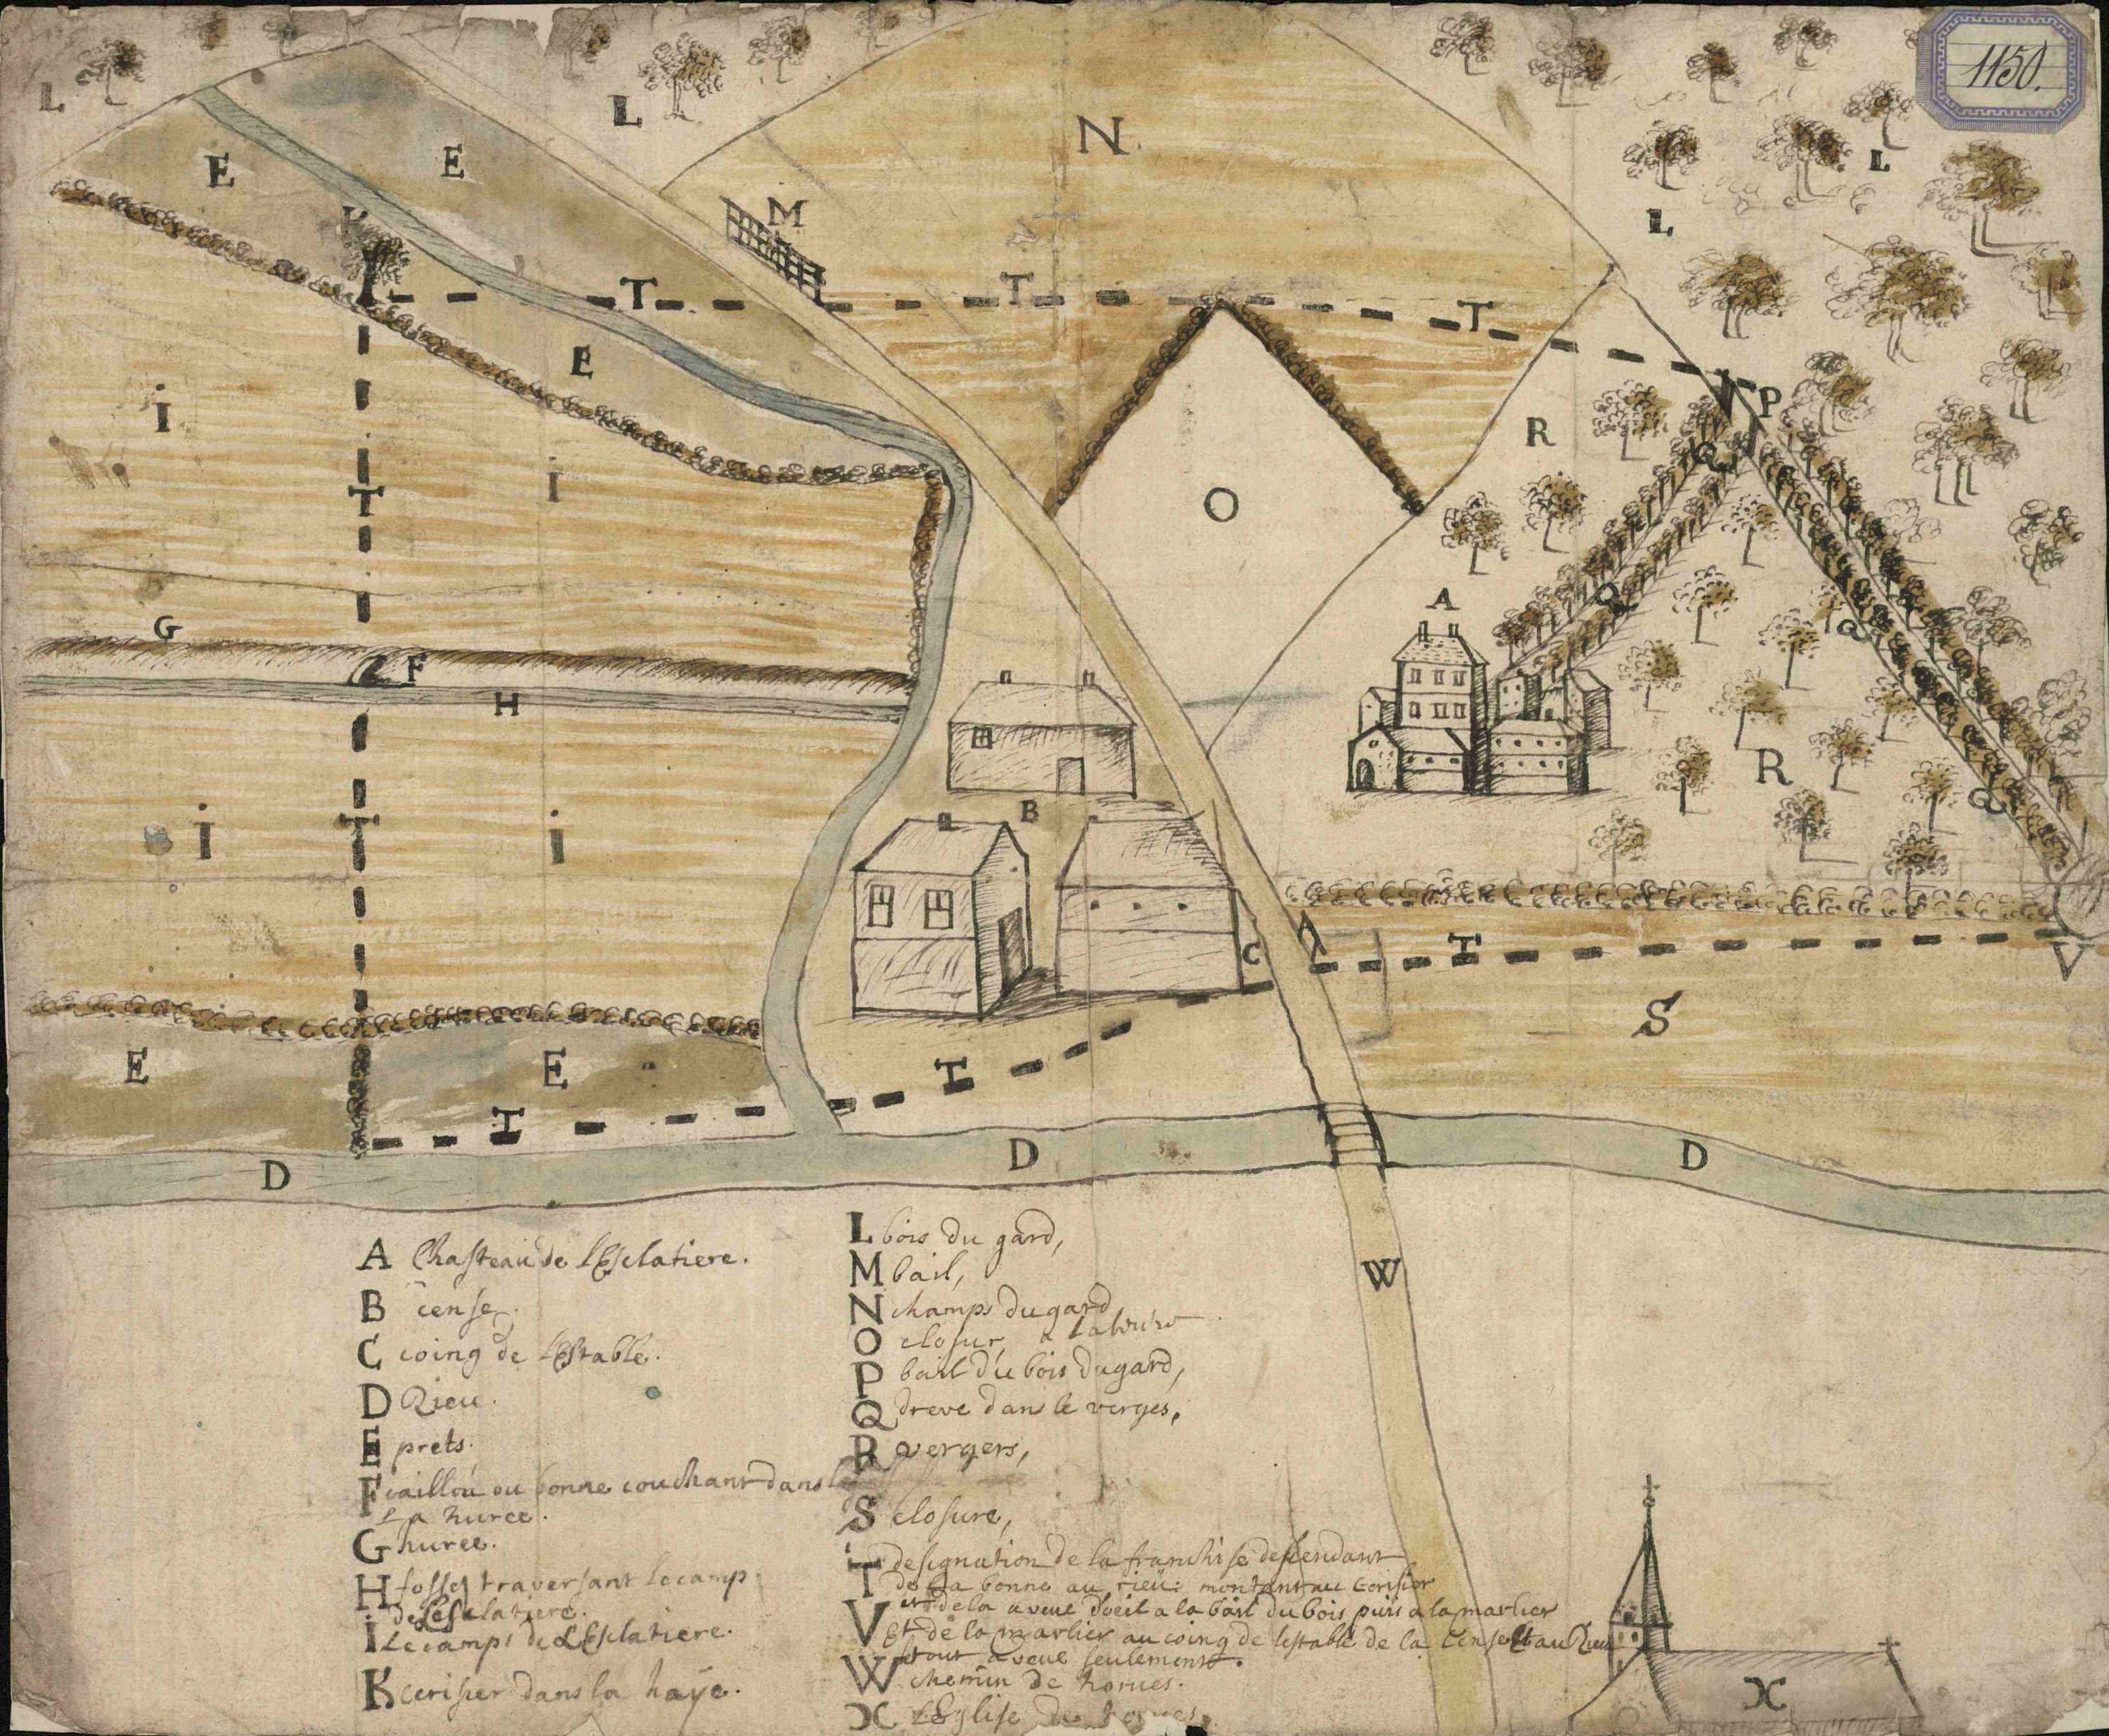 1150.
L
L
N
E
E
L
K
M
L
T
T
T
E
P
I
R
Q
T
I
O
A
Q
G
Q
F
H
R
Q
B
I
T
I
C
T
V
S
E
E
T
T
D
D
D
W
A Chasteau de l'Esclatiere.
B cense.
C coing de l'Estable.
D Rieu.
E prets.
F caillou ou bonne couchant dans
La huree.
G huree.
H fosset traversant le camp
de L'Esclatiere.
I Le camps de L'Esclatiere.
K cerisier dans la haye.
L bois du gard,
M bail,
N champs du gard
O closure a Labeure
P bail du bois du gard,
Q dreve dans le verges,
R vergers,
S closure,
T designation de la franchise dependant
de la bonne au rieu: montant au Cerisier
et de la a veue d'oeil a la bail du bois puis a la marlier
V Et de la marlier au coing de lestable de la Cense Et au Rieu
tout a veue seulement.
W chemin de hornes.
X L'Eglise de hornes.
X